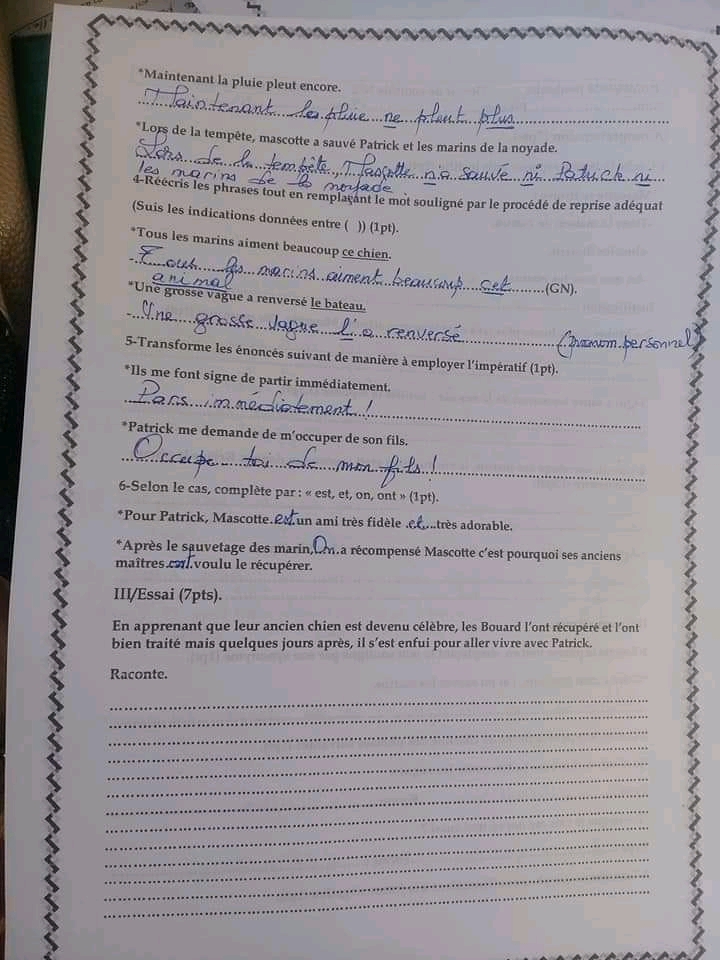 *Maintenant la pluie pleut encore.
Maintenant les pluie ne pleut plus
*Lors de la tempête, mascotte a sauvé Patrick et les marins de la noyade.
Lors de la tempête, Mascotte n'a sauvé ni Patrick ni
les marins de la noyade
4-Réécris les phrases tout en remplaçant le mot souligné par le procédé de reprise adéquat
(Suis les indications données entre ( )) (1pt).
*Tous les marins aiment beaucoup ce chien.
- Tous les marins aiment beaucoup cet (GN).
animal
*Une grosse vague a renversé le bateau.
- Une grosse vague l'a renversé (pronom personnel)
5-Transforme les énoncés suivant de manière à employer l'impératif (1pt).
*Ils me font signe de partir immédiatement.
Pars immédiatement !
*Patrick me demande de m'occuper de son fils.
Occupe toi de mon fils !
6-Selon le cas, complète par : « est, et, on, ont » (1pt).
*Pour Patrick, Mascotte est un ami très fidèle et très adorable.
*Après le sauvetage des marin, On a récompensé Mascotte c'est pourquoi ses anciens
maîtres ont voulu le récupérer.
III/Essai (7pts).
En apprenant que leur ancien chien est devenu célèbre, les Bouard l'ont récupéré et l'ont
bien traité mais quelques jours après, il s'est enfui pour aller vivre avec Patrick.
Raconte.